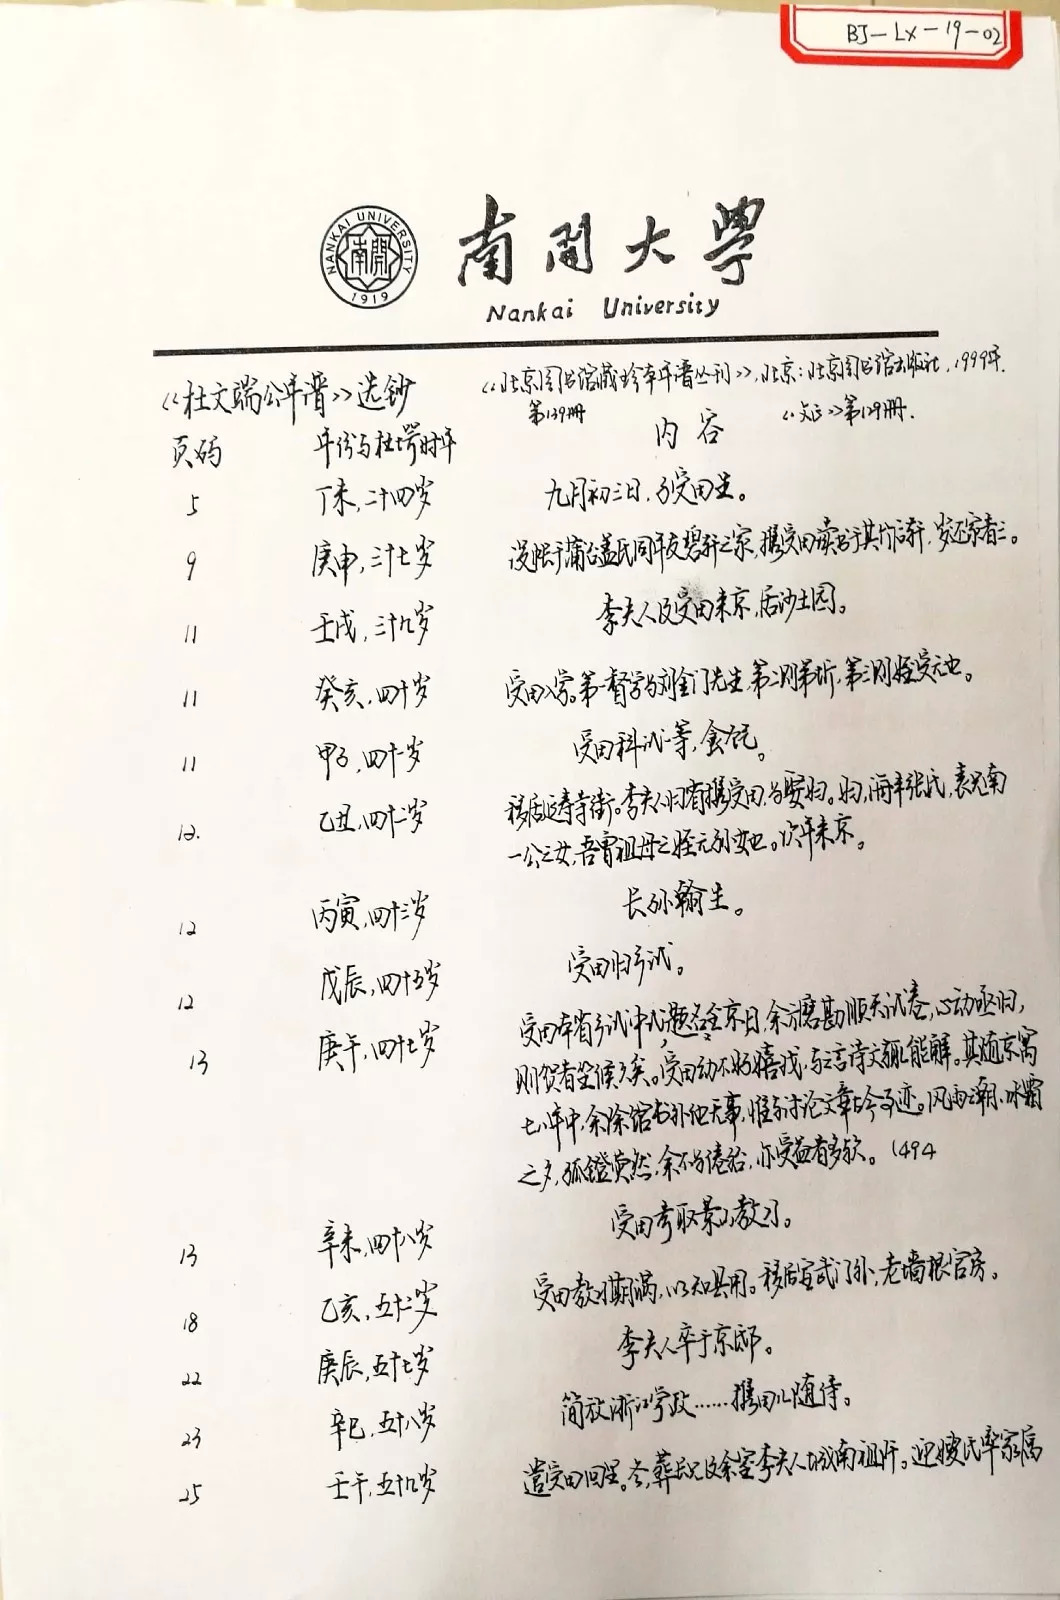 BJ-LX-19-02
NANKAI UNIVERSITY
南開
1919
南開大學
Nankai University
《杜文端公年谱》选钞
《北京图书馆藏珍本年谱丛刊》,北京:北京图书馆出版社,1999年.
第139册
第129册.
页码 年份与杜堮时年 内容
5 丁未,二十四岁 九月初三日,子受田生。
9 庚申,三十七岁 设帐于蒲台盖氏同年友碧轩之家,携受田读书于其竹轩,岁还家者三。
11 壬戌,三十九岁 李夫人及受田来京,居沙土园。
11 癸亥,四十岁 受田入学。第一督学为刘金门先生,第二则弟圻,第三则侄受元也。
11 甲子,四十一岁 受田科试一等,食饩。
12. 乙丑,四十二岁 移居延寿寺街。李夫人归省携受田,为娶妇。妇,海丰张氏,表兄南
一公之女,吾曾祖母之侄元孙女也。次年来京。
12 丙寅,四十三岁 长孙翰生。
12 戊辰,四十五岁 受田归乡试。
13 庚午,四十七岁 受田本省乡试中式,题名至京日,余方磨勘顺天试卷,心动亟归,
则贺者坐候久矣。受田幼不好嬉戏,与之言诗文辄能解。其随京寓
七八年中,余除馆书外他无事,惟与讨论文章古今事迹。风雨之朝,冰霜
之夕,孤镫荧然,余不为倦怠,亦受益者多欤。(494
13 辛未,四十八岁 受田考取景山教习。
18 乙亥,五十二岁 受田教习期满,以知县用。移居宣武门外,老墙根官房。
22 庚辰,五十七岁 李夫人卒于京邸。
23 辛巳,五十八岁 简放浙江学政……携田儿随侍。
25 壬午,五十九岁 遣受田回里。冬,葬长兄及余室李夫人城南祖阡。迎嫂氏率家属